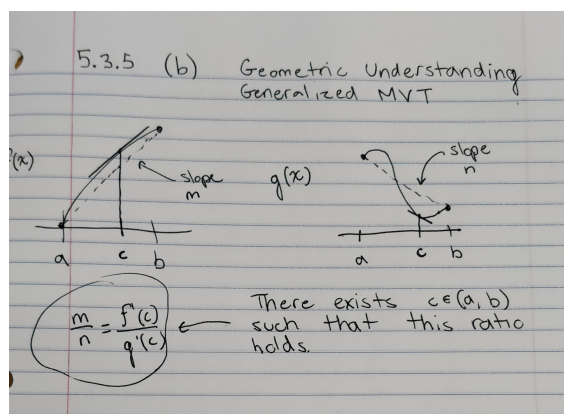 5.3.5 (b) Geometric Understanding
Generalized MVT
f(x)
slope
m
a c b
g(x)
slope
n
a c b
m/n = f'(c)/g'(c)
There exists c∈(a, b)
such that this ratio
holds.